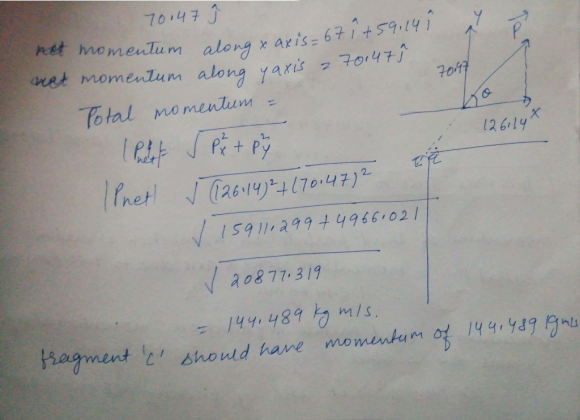 70.47 ĵ
net momentum along x axis = 67 î + 59.14 î
net momentum along y axis = 70.47 ĵ
Total momentum =
|Pnet| = √ Px² + Py²
|Pnet| √ (126.14)² + (70.47)²
√ 15911.299 + 4966.021
√ 20877.319
= 144.489 kg m/s.
fragment 'c' should have momentum of 144.489 kg m/s
Y
P
70.47
θ
126.14
X